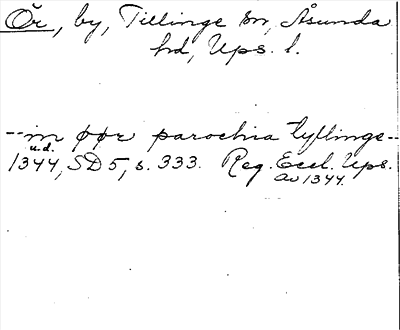 Ör, by, Tillinge sn, Åsunda
hd, Ups. l.
--in øør parochia tyllinge--
u.d.
1344, SD 5, s. 333. Reg. Eccl. Ups.
av 1344.